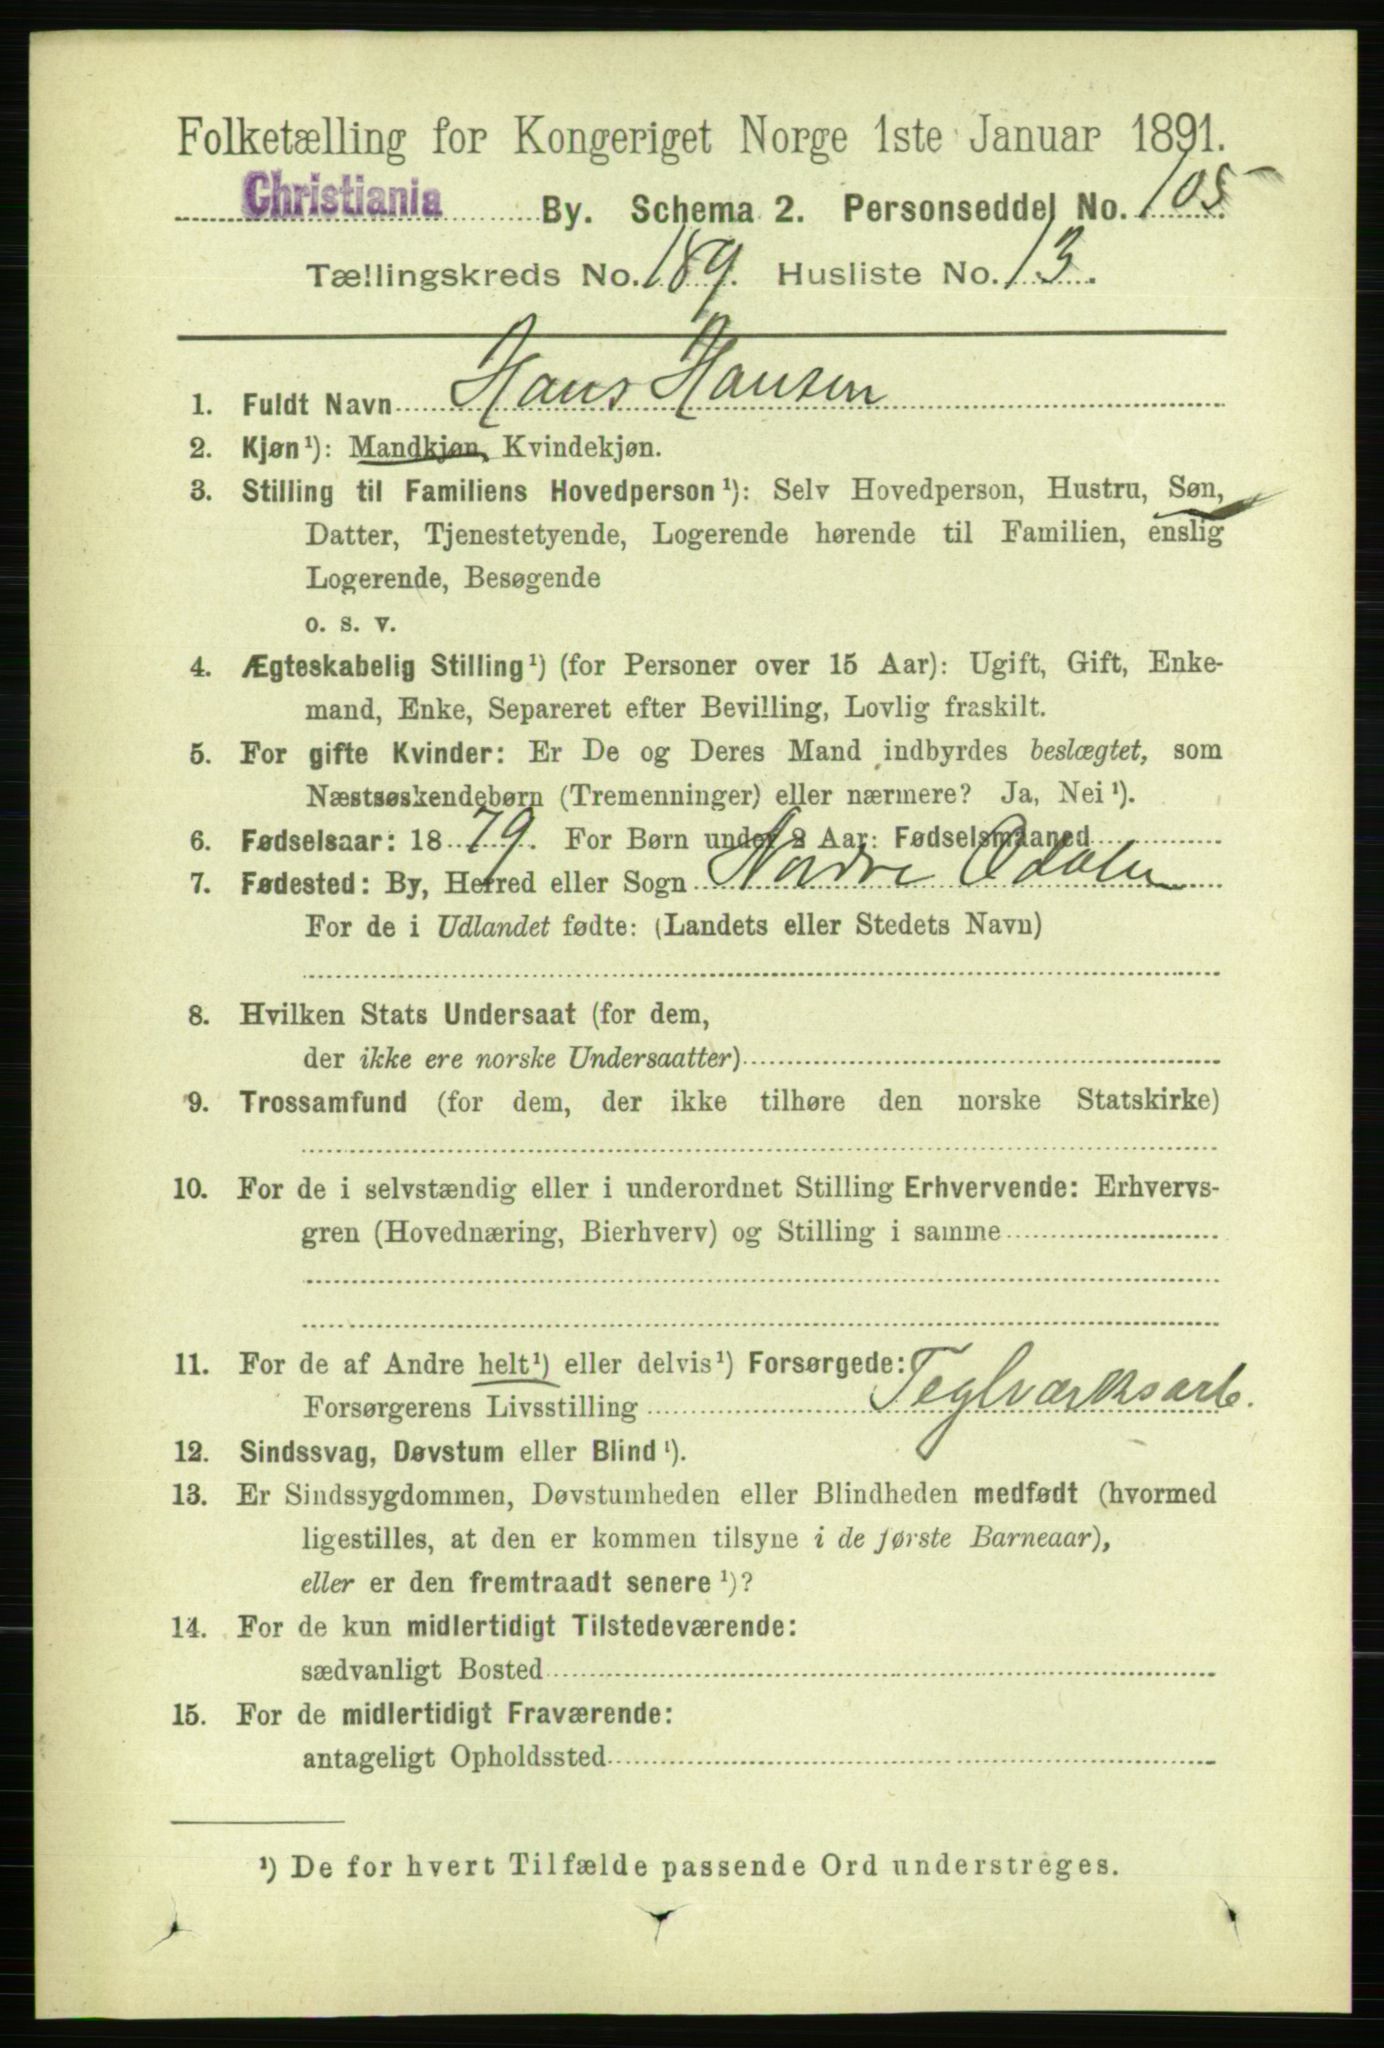 Folketælling for Kongeriget Norge 1ste Januar 1891.
Christiania By. Schema 2. Personseddel No. 105
Tællingskreds No. 189. Husliste No. 13.
1. Fuldt Navn Hans Hansen
2. Kjøn¹): Mandkjøn, Kvindekjøn.
3. Stilling til Familiens Hovedperson¹): Selv Hovedperson, Hustru, Søn,
Datter, Tjenestetyende, Logerende hørende til Familien, enslig
Logerende, Besøgende
o. s. v.
4. Ægteskabelig Stilling¹) (for Personer over 15 Aar): Ugift, Gift, Enke-
mand, Enke, Separeret efter Bevilling, Lovlig fraskilt.
5. For gifte Kvinder: Er De og Deres Mand indbyrdes beslægtet, som
Næstsøskendebørn (Tremenninger) eller nærmere? Ja, Nei¹).
6. Fødselsaar: 1879. For Børn under 2 Aar: Fødselsmaaned
7. Fødested: By, Herred eller Sogn Nordre Odalen
For de i Udlandet fødte: (Landets eller Stedets Navn)
8. Hvilken Stats Undersaat (for dem,
der ikke ere norske Undersaatter)
9. Trossamfund (for dem, der ikke tilhøre den norske Statskirke)
10. For de i selvstændig eller i underordnet Stilling Erhvervende: Erhvervs-
gren (Hovednæring, Bierhverv) og Stilling i samme
11. For de af Andre helt¹) eller delvis¹) Forsørgede:
Forsørgerens Livsstilling Teglværksarb.
12. Sindssvag, Døvstum eller Blind¹).
13. Er Sindssygdommen, Døvstumheden eller Blindheden medfødt (hvormed
ligestilles, at den er kommen tilsyne i de første Barneaar),
eller er den fremtraadt senere¹)?
14. For de kun midlertidigt Tilstedeværende:
sædvanligt Bosted
15. For de midlertidigt Fraværende:
antageligt Opholdssted
¹) De for hvert Tilfælde passende Ord understreges.